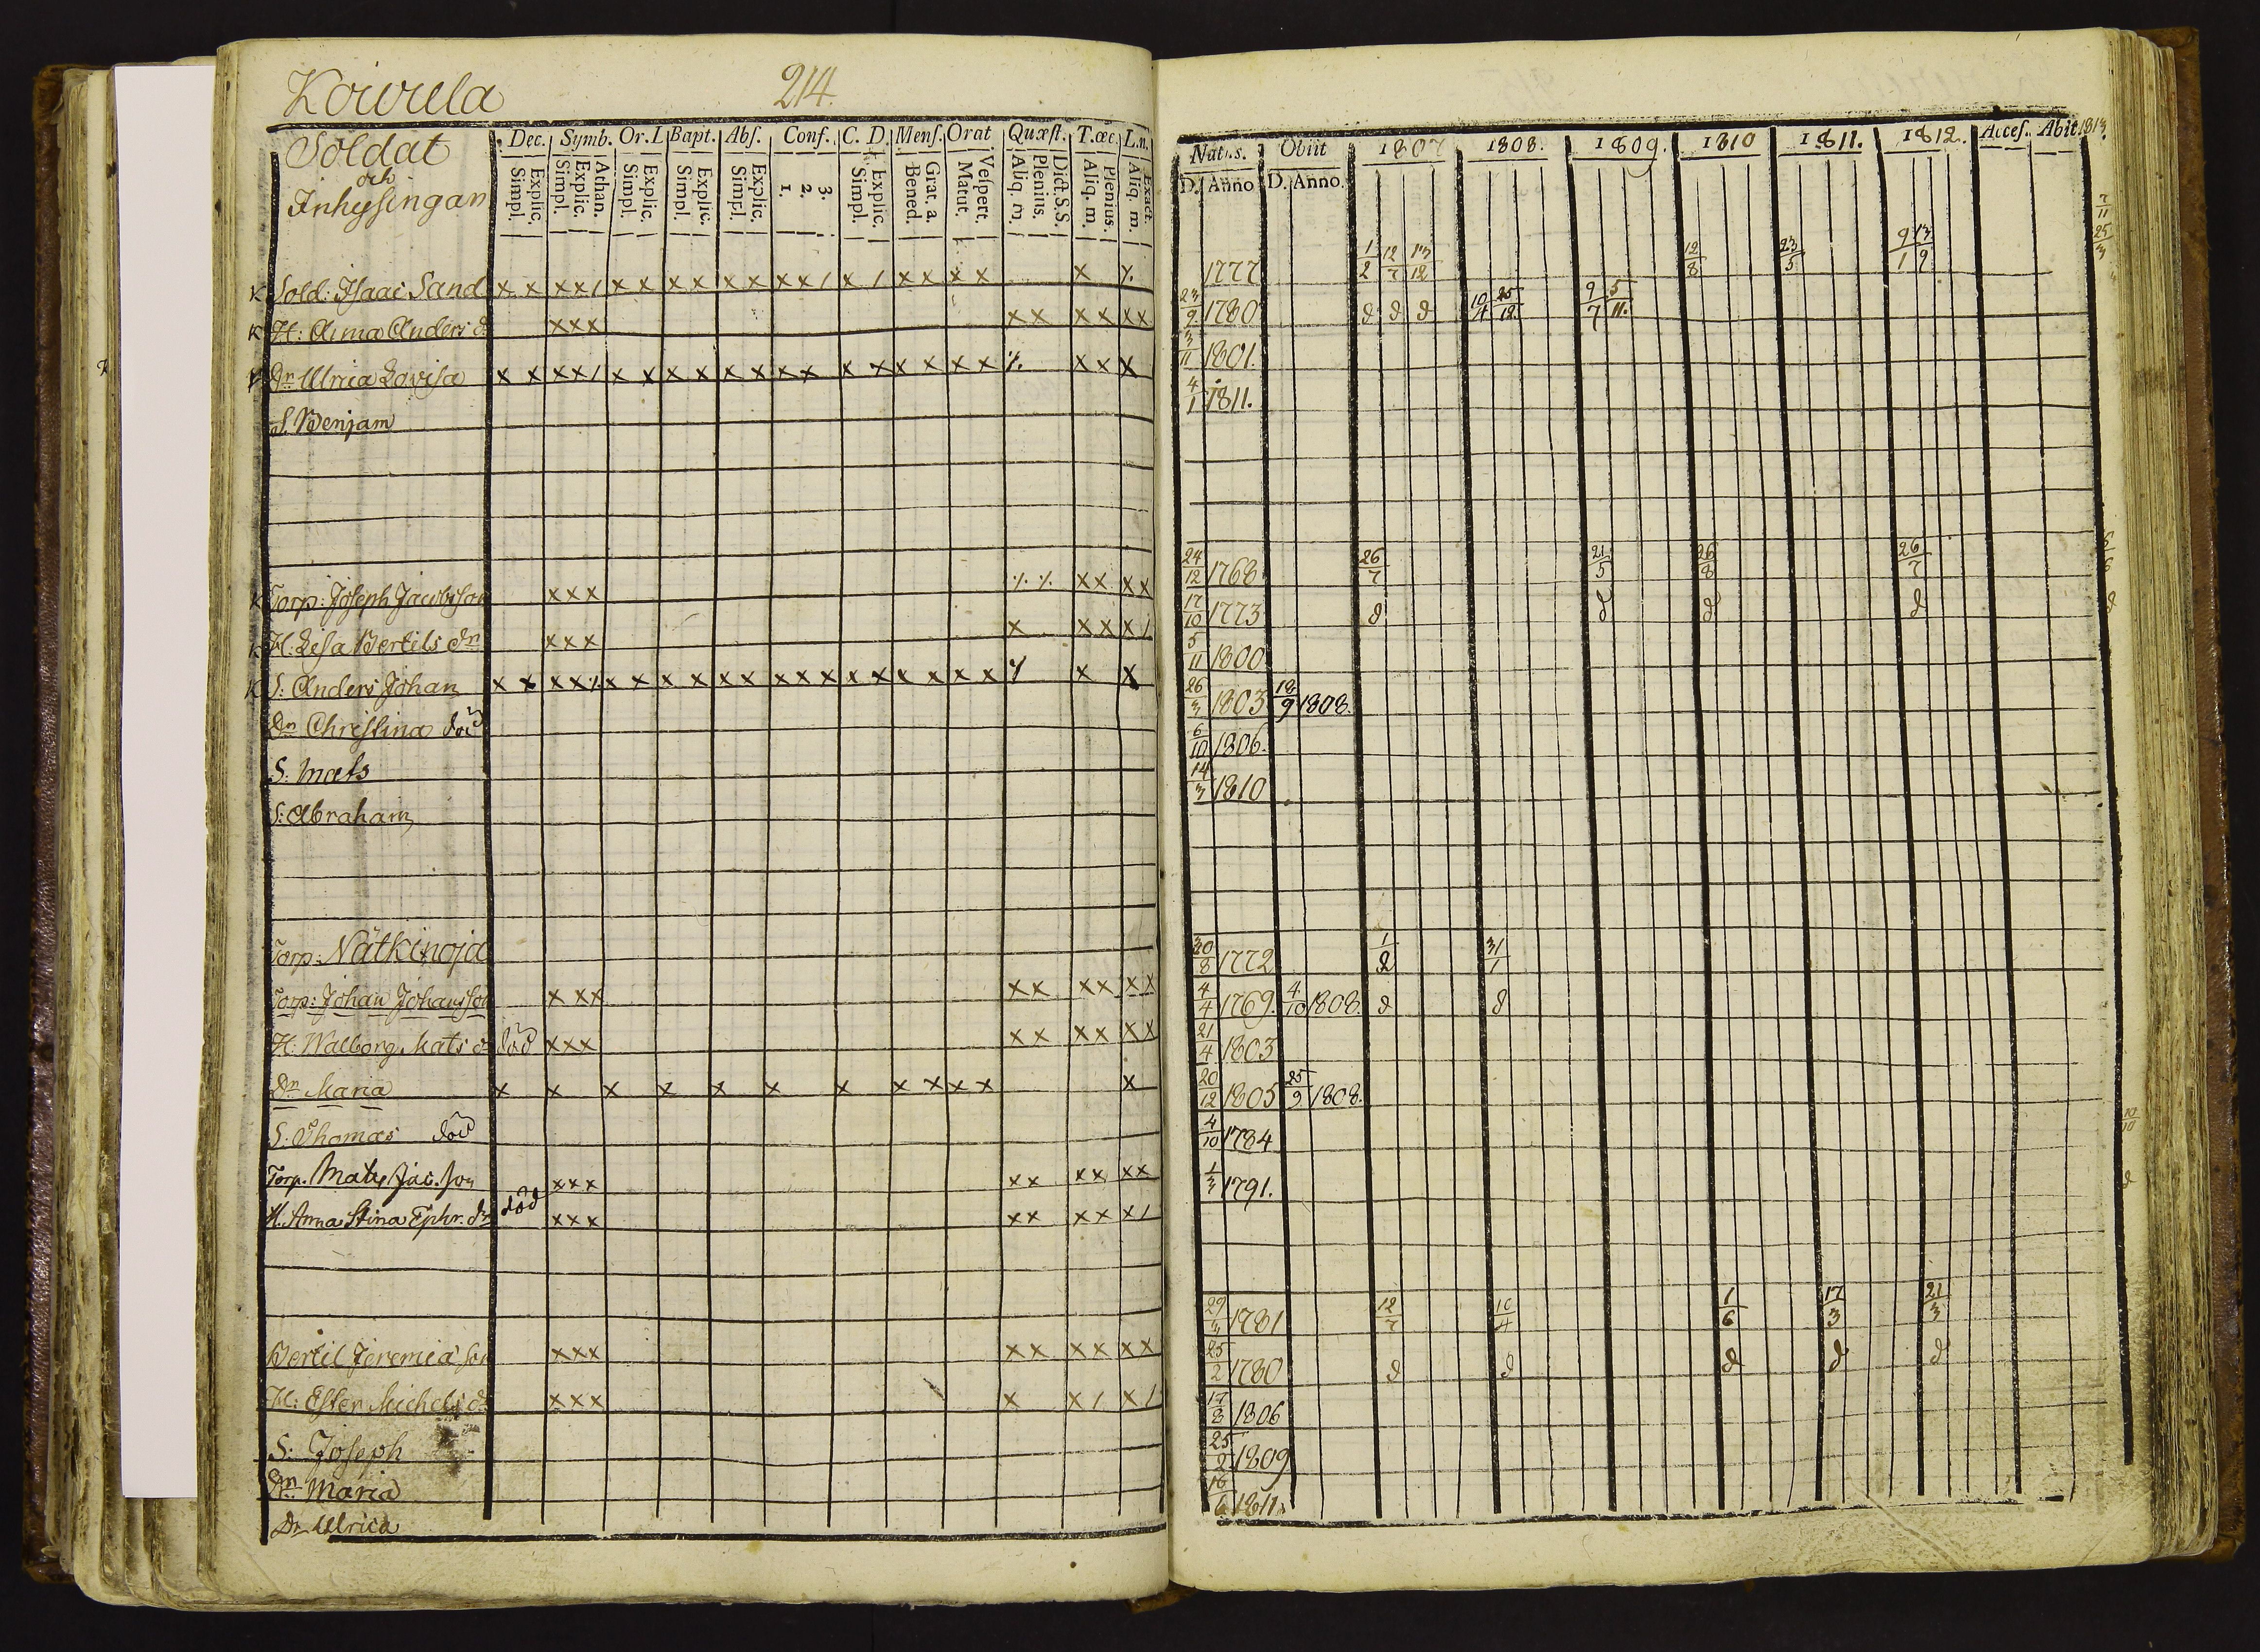 Koivula 214.
Soldat
och
Inhysingar
Dec. Symb. Or. L Bapt. Abs. Conf. C. D. Mens. Orat Quæst. T. œc. L. n.
Simpl. Explic. Simpl. Explic. Athan. Simpl. Explic. Simpl. Explic. Simpl. Explic. 1. 2. 3. Simpl. Explic. Bened. Grat. a. Matut. Vespert. Aliq. m. Plenius. Dict. S. S. Aliq. m. Plenius. Aliq. m. Exact.
Natus. Obiit 1807 1808. 1809. 1810 1811. 1812. Acces. Abit 1813.
D. Anno D. Anno.
K Sold: Isaac Sand x x x x / x x x x x x x x / x / x x x x x 1777 1/2 12/7 13/12 12/8 23/5 9/1 13/9 25/3
K H: Anna Anders d x x x x x x x x x 23/9 1780 d d d 10/4 25/12 9/7 5/11
K Dr Ulrica Lovisa x x x x / x x x x x x x x x x x x x x x x x 3/11 1801.
S. Benjam 4/1 1811.
K Torp: Joseph Jacobsson x x x x x x x 24/12 1768 26/7 21/5 26/8 26/7
K H: Lisa Bertils dr x x x x x x x / 17/10 1773 d d d d d
K S: Anders Johan x x x x / x x x x x x x x x x x x x x x x x 5/11 1800
Dr Christina död 26/3 1803 18/9 1808.
S. Mats 6/10 1806.
S: Abraham 14/3 1810
Torp: Nätkinoja
Torp: Johan Johansson x x x x x x x x x 30/8 1772 1/2 31/1
H: Walborg Mats dr död x x x x x x x x x 4/4 1769. 4/10 1808. d d
Dr Maria x x x x x x x x x x x x 21/4 1803
S. Thomas död 20/12 1805 25/9 1808.
Torp. Mats Jac. son x x x x x x x x x 4/10 1784 10/10
H. Anna Stina Ephr. dr död x x x x x x x x / 1/3 1791. d
Bertil Jeremiä son x x x x x x x x x 29/3 1781 12/7 10/4 1/6 17/3 21/3
H: Ester Michels dr x x x x x / x / 25/2 1780 d d d d d
S: Joseph 17/8 1806
Dr Maria 25/2 1809
Dr Ulrica 16/6 1811.